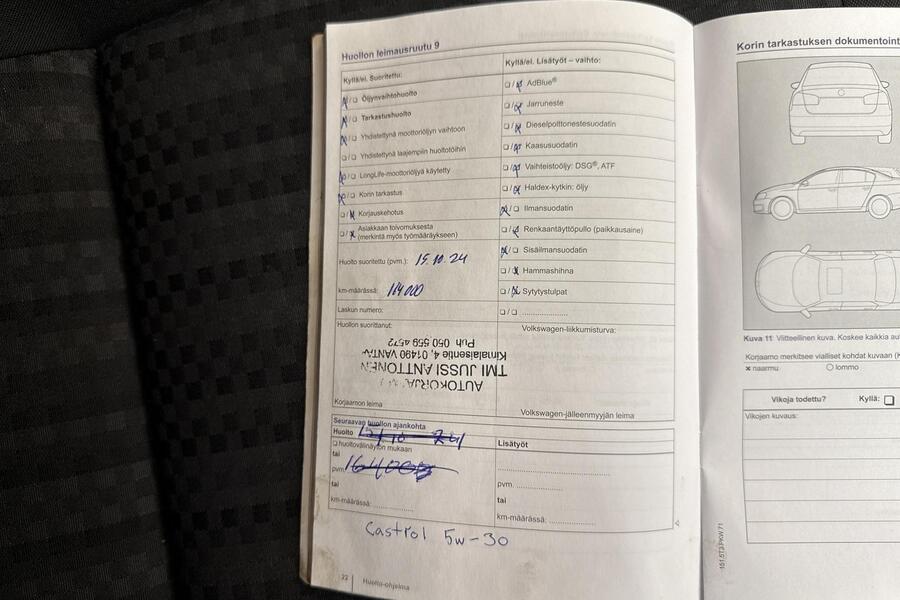 Huollon leimausruutu 9
Kyllä/ei. Suoritettu:
☒/☐ Öljynvaihtohuolto
☒/☐ Tarkastushuolto
☒/☐ Yhdistettynä moottoriöljyn vaihtoon
☐/☐ Yhdistettynä laajempiin huoltotöihin
☒/☐ LongLife-moottoriöljyä käytetty
☒/☐ Korin tarkastus
☐/☒ Korjauskehotus
☐/☒ Asiakkaan toivomuksesta
(merkintä myös työmääräykseen)
Huolto suoritettu (pvm.): 15.10.24
km-määrässä: 164000
Laskun numero:
Huollon suorittanut:
AUTOKORJA
TMI JUSSI ANTTONEN
Kimalaisentie 4, 01490 VANTA
Puh 050 559 4572
Korjaamon leima
Kyllä/ei. Lisätyöt – vaihto:
☐/☒ AdBlue®
☐/☒ Jarruneste
☐/☒ Dieselpolttonestesuodatin
☐/☒ Kaasusuodatin
☐/☒ Vaihteistoöljy: DSG®, ATF
☐/☒ Haldex-kytkin: öljy
☒/☐ Ilmansuodatin
☐/☒ Renkaantäyttöpullo (paikkausaine)
☒/☐ Sisäilmansuodatin
☐/☒ Hammashihna
☐/☒ Sytytystulpat
☐/☐ ....................
Volkswagen-liikkumisturva:
Volkswagen-jälleenmyyjän leima
Seuraavan huollon ajankohta
Huolto
☐ huoltovälinäytön mukaan
tai
pvm. 164000
tai
km-määrässä: ................
Lisätyöt
pvm. ................
tai
km-määrässä: ................
Castrol 5w-30
22 Huolto-ohjelma
Korin tarkastuksen dokumentoint
Kuva 11 Viitteellinen kuva. Koskee kaikkia au
Korjaamo merkitsee vialliset kohdat kuvaan (
✖ naarmu ○ lommo
Vikoja todettu? Kyllä: ☐
Vikojen kuvaus:
151.5T3.PKW.71